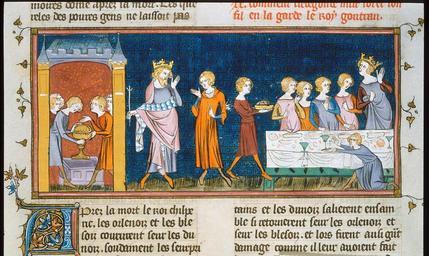 moires come apres la mort. Les que
reles des poures gens ne laissoit pas
XX. comment fredegonde mist torre son
fil en la garde le Roy goutran.
Apres la mort le Roi chilpe
ric. les orlenois et les ble
sou coururent seur les du
nois. soudement les seurpri
tains et les dunois salierent ensam
ble si retournerent seur les orlenois et
seur les blesois. et lors firent ausi gnt
damage comme il leur auoient fait